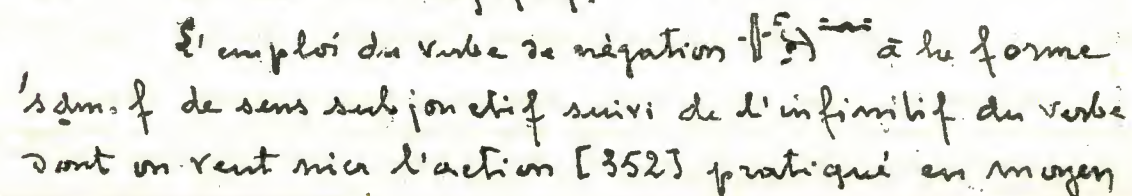 L'emploi du verbe de négation à la forme
'sḏm.f de sens subjonctif suivi de l'infinitif du verbe
dont on veut nier l'action [352] pratiqué en moyen